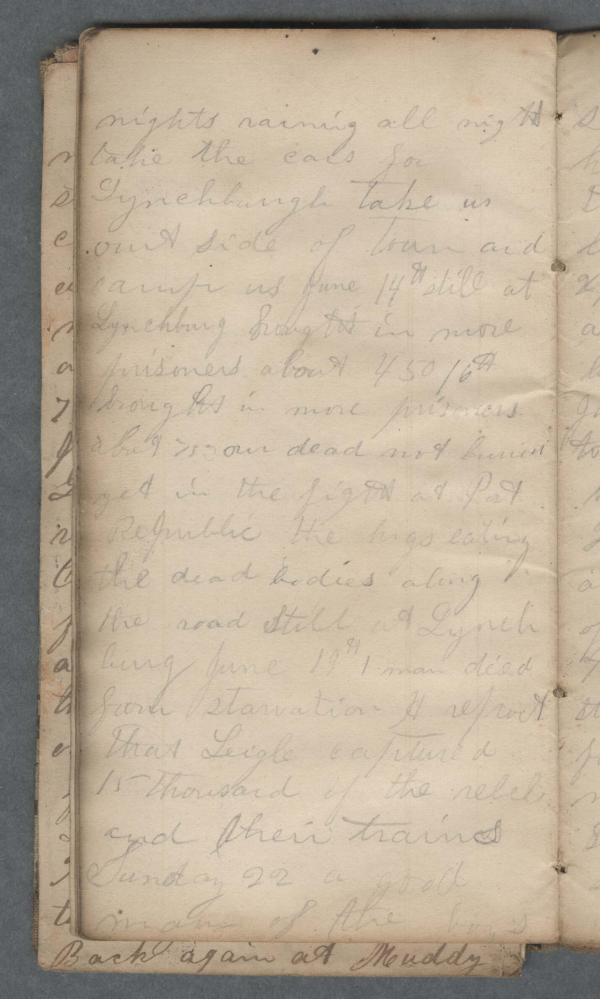 nights raining all night
take the cars for
Lynchburgh take us
out side of town and
camp us June 14th still at
Lynchburg brought in more
prisoners about 450 16th
brought in more prisoners
about 750 our dead not buried
yet in the fight at Port
Republic the hogs eating
the dead bodies along
the road still at Lynch
burg June 19th 1 man died
from starvation A report
that Seigle captured
15 thousand of the rebels
and their trains
Sunday 22 a good
many of the boys
Back again at Muddy